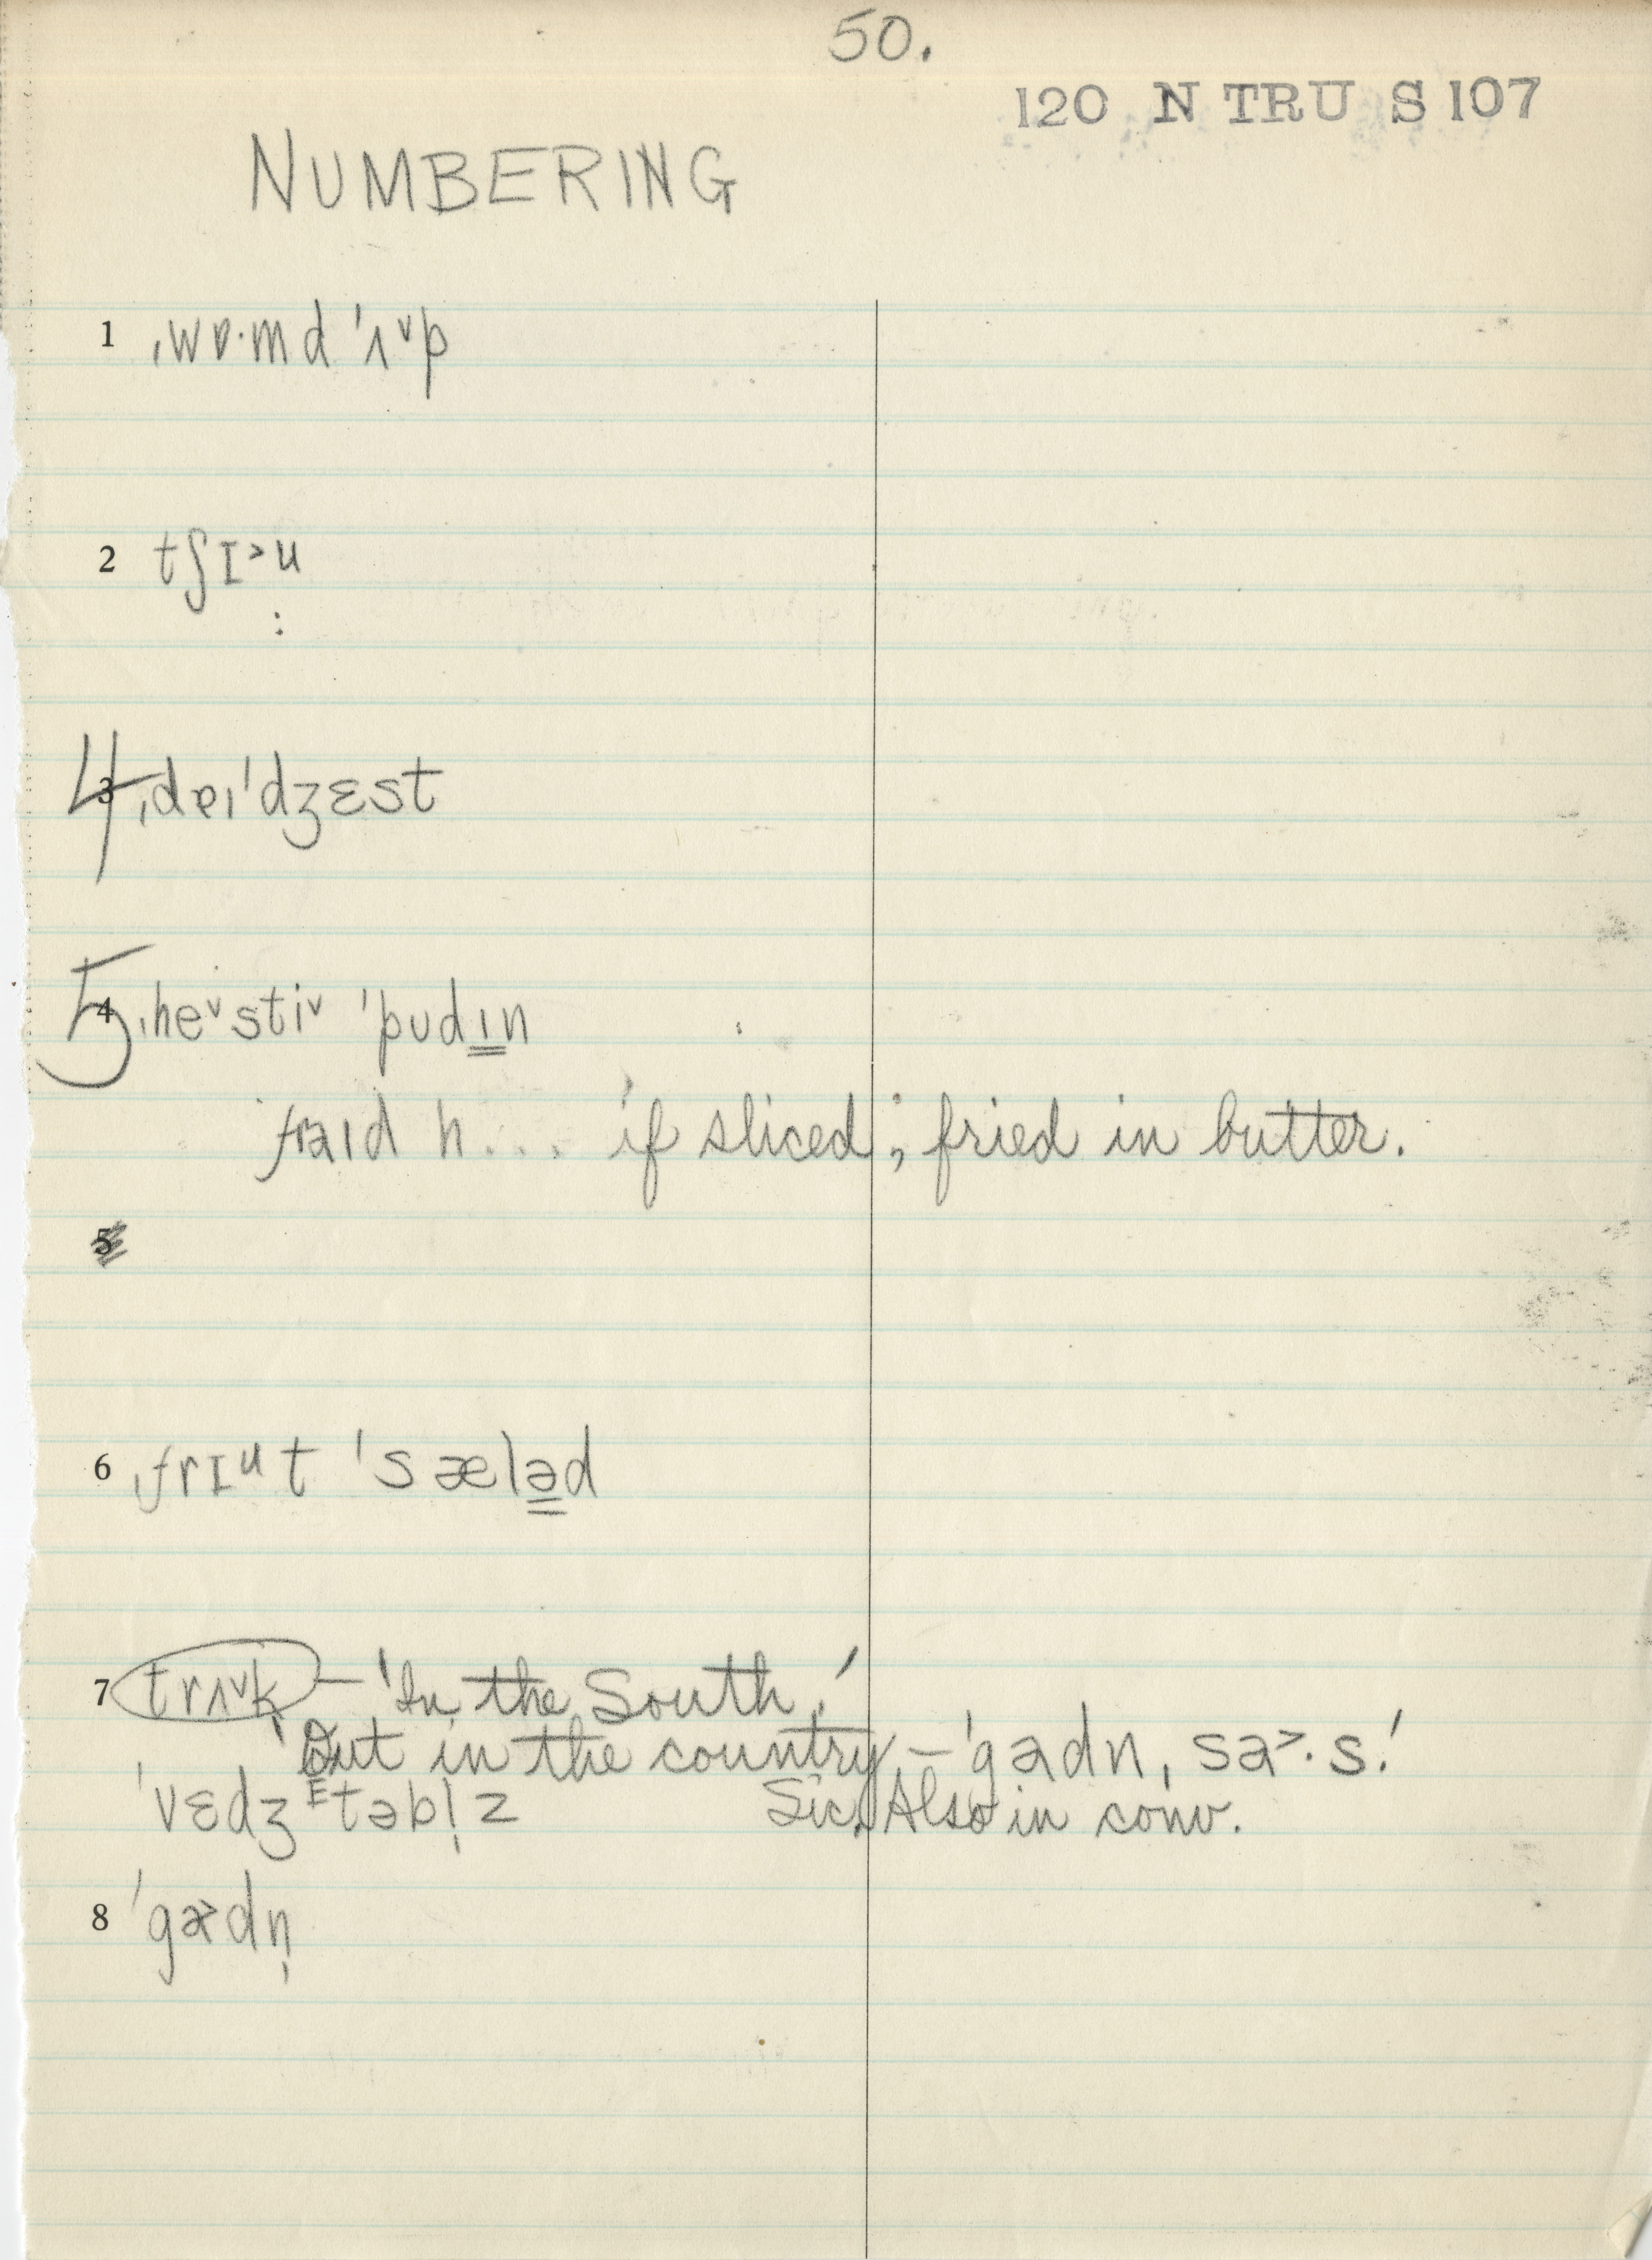 50.
120 N TRU S 107
NUMBERING
1 ˌwɒ·md ˈʌ˅p
2 tʃɪ˃u
4 3 ˌdɐɪˈdʒɛst
5 4 ˌhe˅sti˅ ˈpʊdɪ̳n
fraɪd h... if sliced; fried in butter.
5
6 ˌfrɪᵘt ˈsælə̳d
7 trʌ˅k — 'In the South.'
'Out in the country — ˈgadn, sa˃·s.'
ˈvɛdʒᴱtəbl̩z Sic. Also in conv.
8 ˈga˃dn̩